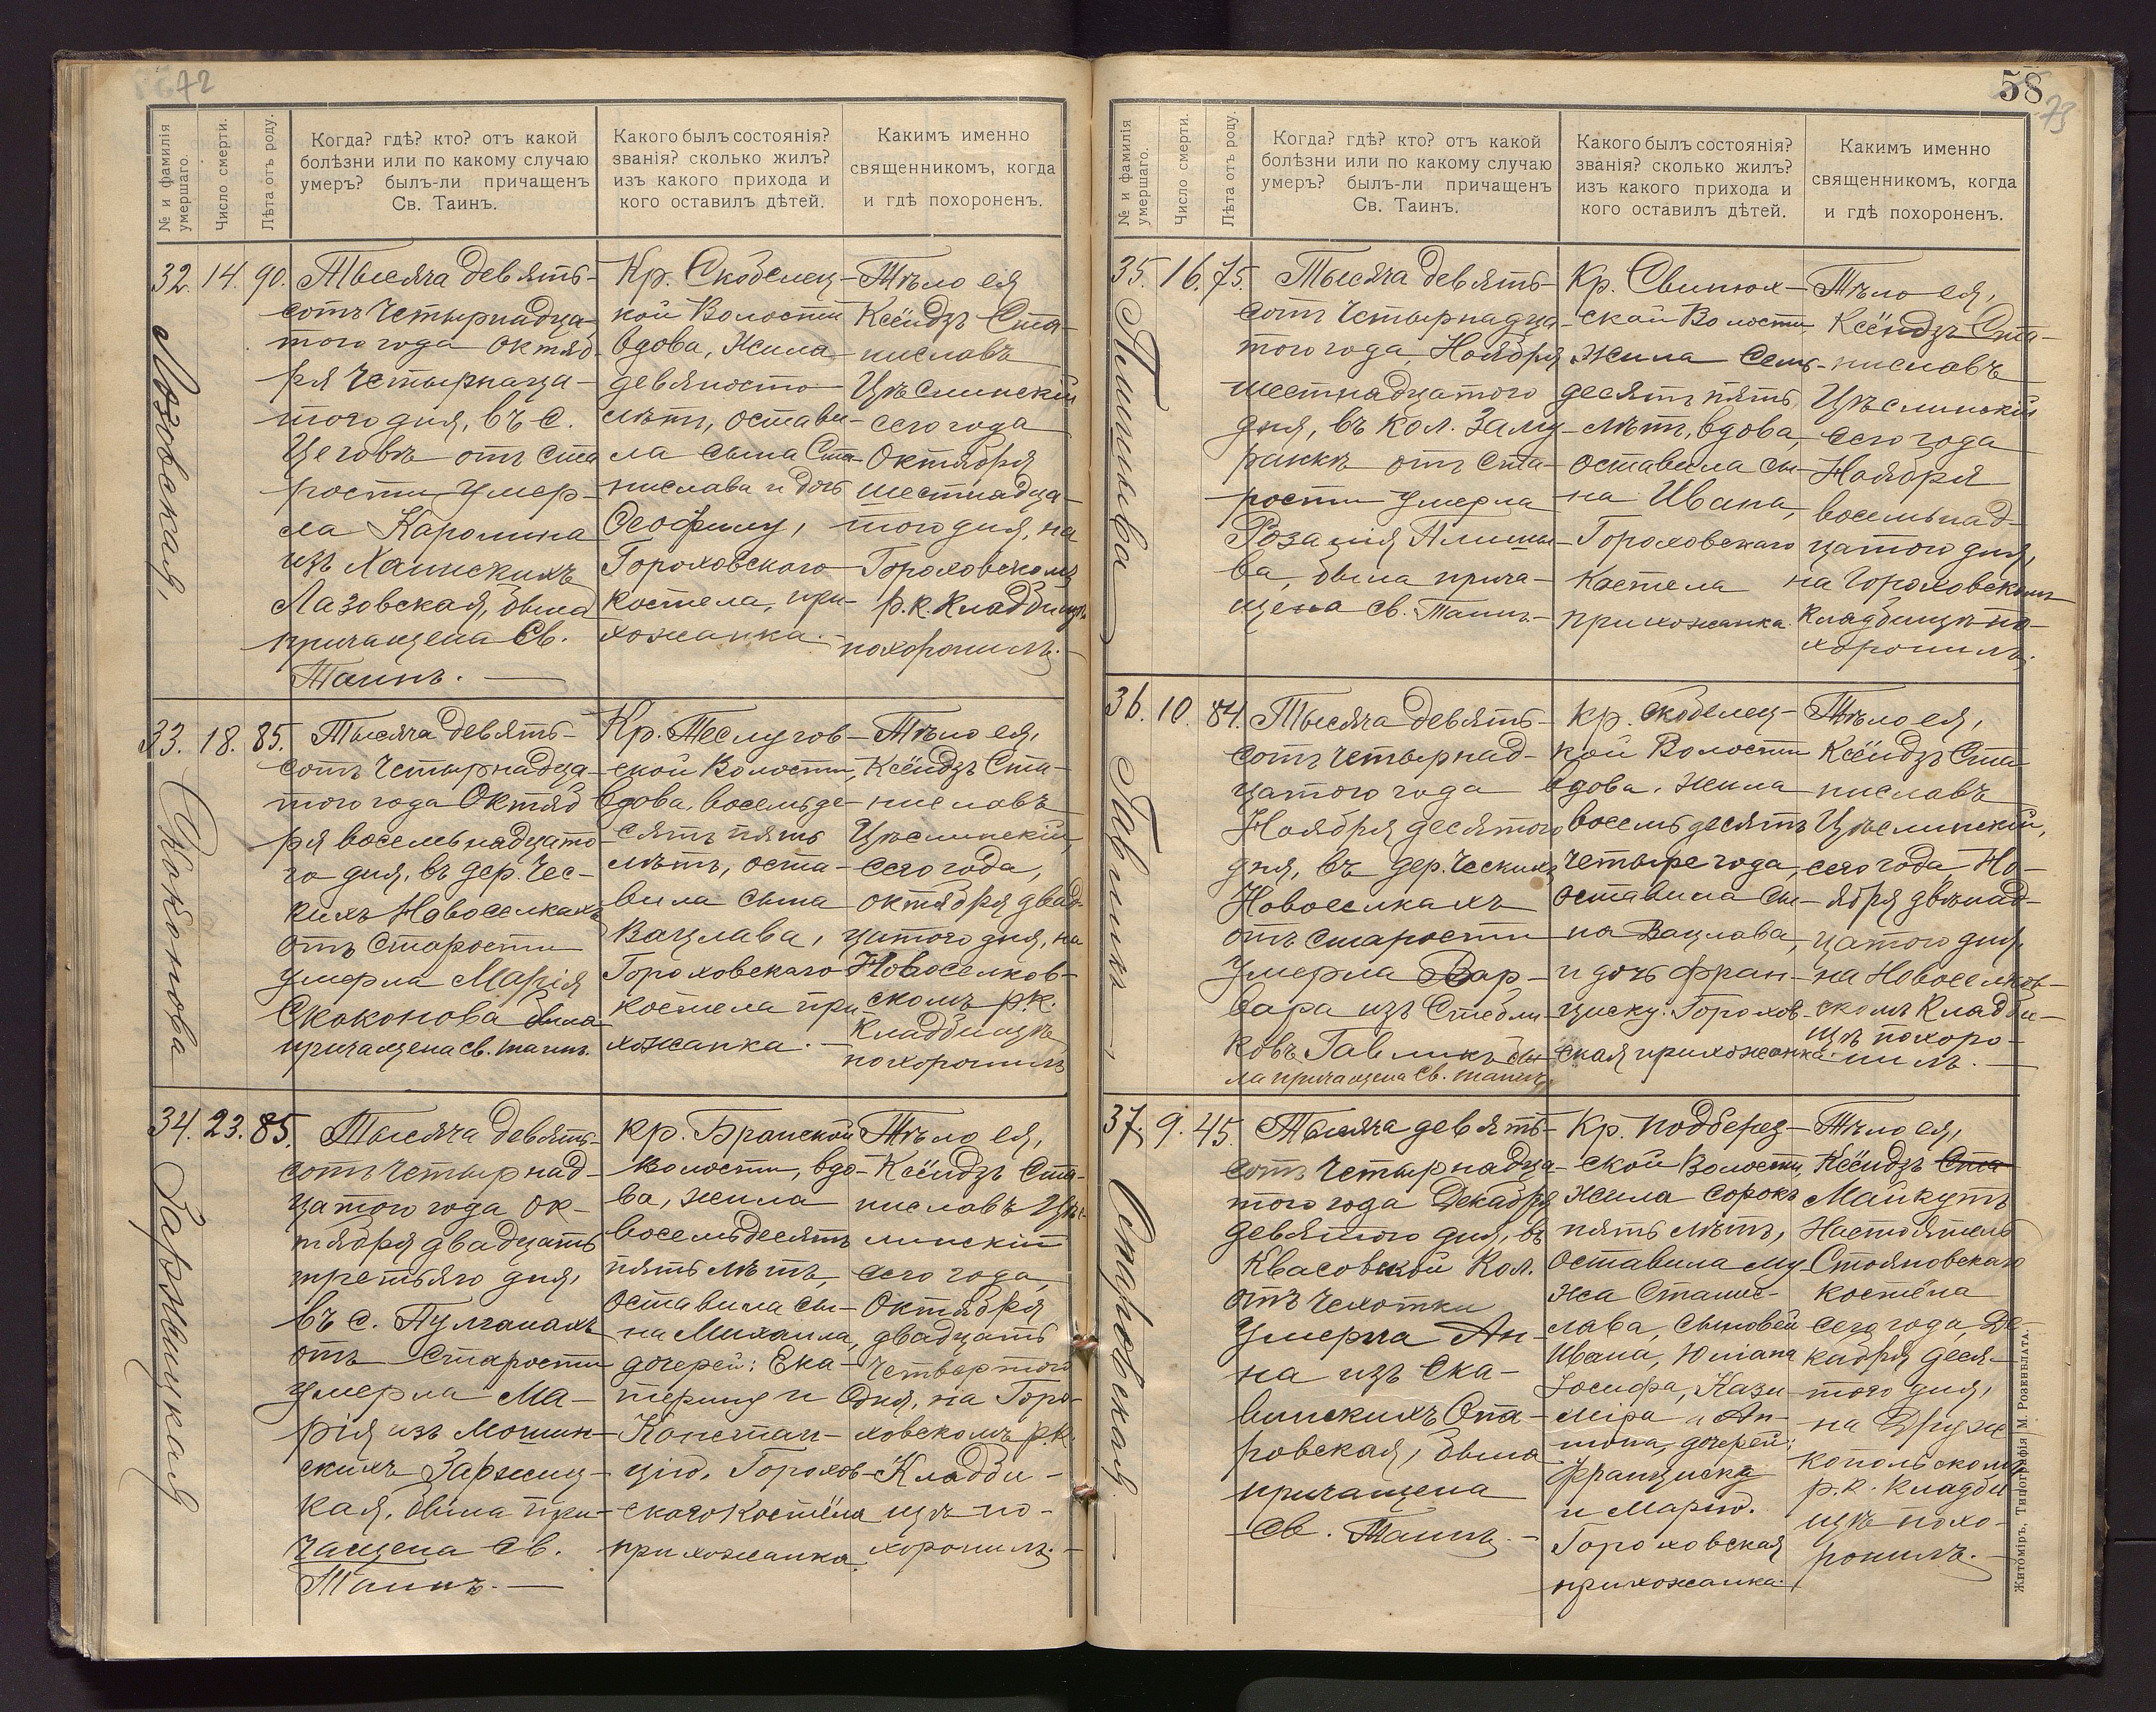 72
№ и фамилія умершаго.
Число смерти.
Лѣта отъ роду.
Когда? гдѣ? кто? отъ какой
болѣзни или по какому случаю
умеръ? былъ-ли причащенъ
Св. Таинъ.
Какого былъ состоянія?
званія? сколько жилъ?
изъ какого прихода и
кого оставилъ дѣтей.
Какимъ именно
священникомъ, когда
и гдѣ похороненъ.
32. 14. 90.
Лозовская,
Тысяча девять-
сотъ четырнадца-
того года Октяб-
ря четырнаца-
того дня, въ с.
Цеговѣ отъ ста
рости умер-
ла Каролина
изъ
Лазовская, была
причащена Св.
Таинъ. —
Кр. Скобелец-
кой Волости
вдова, жила
девяносто
лѣтъ, остави-
ла сына Ста-
нислава и дочь
Ѳеофилу,
Гороховского
костела, при-
хожанка. -
Тѣло ея
Ксёндзъ Ста-
ниславъ
Цѣслинскій
сего года
Октября
шестнадца-
того дня, на
Гороховскомъ
р. к. кладбищѣ
похоронилъ.
33. 18. 85.
Скоконова
Тысяча девять-
сотъ четырнадца-
того года Октяб
ря восемьнадцато
го дня, въ дер. Чес-
кихъ Новоселкахъ
отъ старости
умерла Марія
Скоконова была
причащена св. таинъ.
Кр. Теслугов-
ской Волости,
вдова, восемьде-
сятъ пять
лѣтъ, оста-
вила сына
Вацлава,
Гороховскаго
костела при-
хожанка. -
Тѣло ея,
Ксёндзъ Ста-
ниславъ
Цѣслинскій,
сего года,
октября двад-
цатого дня, на
Новоселков-
скомъ р.к.
кладбищѣ
похоронилъ
34. 23. 85.
Заржицкая
Тысяча девять-
сотъ четырнад-
цатого года ок-
тября двадцать
третьяго дня,
въ с. Пулганахъ
отъ старости
умерла Ма-
рія изъ
скихъ Заржиц-
кая, была при-
чащена Св.
Таинъ. —
Кр. Бранской
Волости, вдо-
ва, жила
восемьдесятъ
пять лѣтъ,
оставила сы-
на Михаила,
дочерей: Ека-
терину и
Констан-
цію, Горохов-
скаго костёла
прихожанка.
Тѣло ея,
Ксёндзъ Ста-
ниславъ Цѣс-
линскій
сего года,
Октября
двадцать
четвертого
дня, на Горо-
ховскомъ р.к.
Кладби-
щѣ по-
хоронилъ. -
58
73
№ и фамилія умершаго.
Число смерти.
Лѣта отъ роду.
Когда? гдѣ? кто? отъ какой
болѣзни или по какому случаю
умеръ? былъ-ли причащенъ
Св. Таинъ.
Какого былъ состоянія?
званія? сколько жилъ?
изъ какого прихода и
кого оставилъ дѣтей.
Какимъ именно
священникомъ, когда
и гдѣ похороненъ.
35. 16. 75.
Тысяча девять-
сотъ четырнадца-
того года, Ноября
шестнадцатого
дня, въ кол. Заму-
отъ ста-
рости умерла
Розалія
ва, была прича-
щена св. Таинъ.-
Кр. Свинюх-
ской Волости
жила семь-
десятъ пять
лѣтъ, вдова,
оставила сы-
на Ивана,
Гороховскаго
костела
прихожанка.
Тѣло ея,
Ксёндзъ Ста-
ниславъ
Цѣслинскій
сего года
Ноября
восемьнад-
цатого дня,
на Гороховскомъ
кладбищѣ по-
хоронилъ.
36. 10. 84.
Гавликъ,
Тысяча девять-
сотъ четырнад-
цатого года
Ноября десятого
дня, въ дер. Ческихъ
Новоселкахъ
отъ старости
умерла Вар-
вара изъ Стебли-
ковъ Гавликъ бы-
ла причащена Св. таинъ.
Кр. Скобелец-
кой Волости
вдова, жила
восемьдесятъ
четыре года,
оставила сы-
на Вацлава,
и дочь Фран-
циску. Горохов-
ская прихожанка.
Тѣло ея,
Ксёндзъ Ста
ниславъ
Цѣслинскій,
сего года, Но-
ября двѣнад-
цатого дня,
на Новоселков-
скомъ Кладби-
щѣ похоро-
нилъ. —
37. 9. 45.
Опаровская. —
Тысяча девять-
сотъ четырнадца-
того года Декабря
девятого дня, въ
Квасовской Кол.
отъ чехотки
умерла Ан-
на изъ Ска-
винскихъ Опа-
ровская, была
причащена
Св. Таинъ. -
Кр. Подберез-
ской Волости,
жила сорокъ
пять лѣтъ,
оставила му
жа Станис-
лава, сыновей
Ивана, Юліана
Іосифа, Кази
міра и Ан-
тона, дочерей:
Франциску
и Марію.
Гороховская
прихожанка.
Тѣло ея,
Ксёндзъ Ста
Майкутъ
Настоятель
Стояновскаго
костёла
сего года, Де-
кабря деся-
того дня,
на Друж
копольскомъ
р. к. кладби
щѣ похо-
ронилъ. -
Житоміръ, Типографія М. Розенблата.